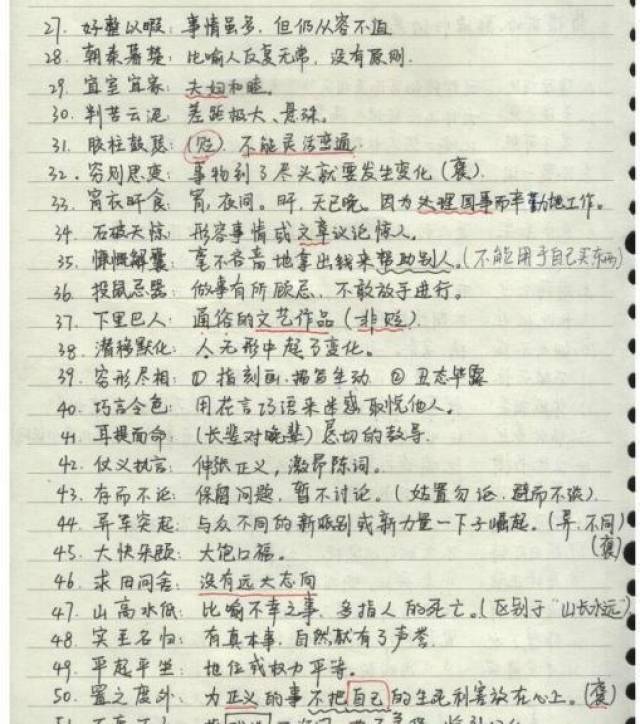 27. 好整以暇: 事情虽多, 但仍从容不迫
28. 朝秦暮楚: 比喻人反复无常, 没有原则.
29. 宜室宜家: 夫妇和睦。
30. 判若云泥: 差距极大、悬殊。
31. 胶柱鼓瑟: (贬) 不能灵活变通.
32. 穷则思变: 事物到了尽头就要发生变化 (褒).
33. 宵衣旰食: 宵, 夜间。旰, 天已晚。因为处理国事而辛勤地工作。
34. 石破天惊: 形容事情或文章议论惊人。
35. 慷慨解囊: 毫不吝啬地拿出钱来帮助别人。(不能用于自己买东西)
36. 投鼠忌器: 做事有所顾忌、不敢放手进行。
37. 下里巴人: 通俗的文艺作品 (非贬).
38. 潜移默化: 人无形中起了变化。
39. 穷形尽相: ① 指刻画、描写生动 ② 丑态毕露
40. 巧言令色: 用花言巧语来迷惑取悦他人。
41 耳提面命: (长辈对晚辈) 恳切的教导.
42. 仗义执言: 伸张正义, 激昂陈词。
43. 存而不论: 保留问题, 暂不讨论。(姑置勿论, 避而不谈)
44. 异军突起: 与众不同的新派别或新力量一下子崛起。(异: 不同) (褒)
45. 大快朵颐: 大饱口福。
46. 求田问舍: 没有远大志向
47. 山高水低: 比喻不幸之事, 多指人的死亡。(区别于 "山长水远")
48. 实至名归: 有真本事, 自然就有了声誉.
49. 平起平坐: 地位或权力平等。
50. 置之度外: 为正义的事不把自己的生死利害放在心上。(褒)